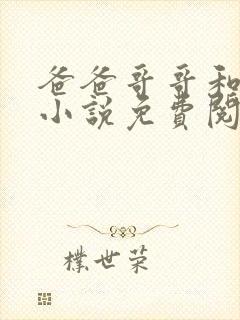 爸爸哥哥和
小說免費閱
樸世荣